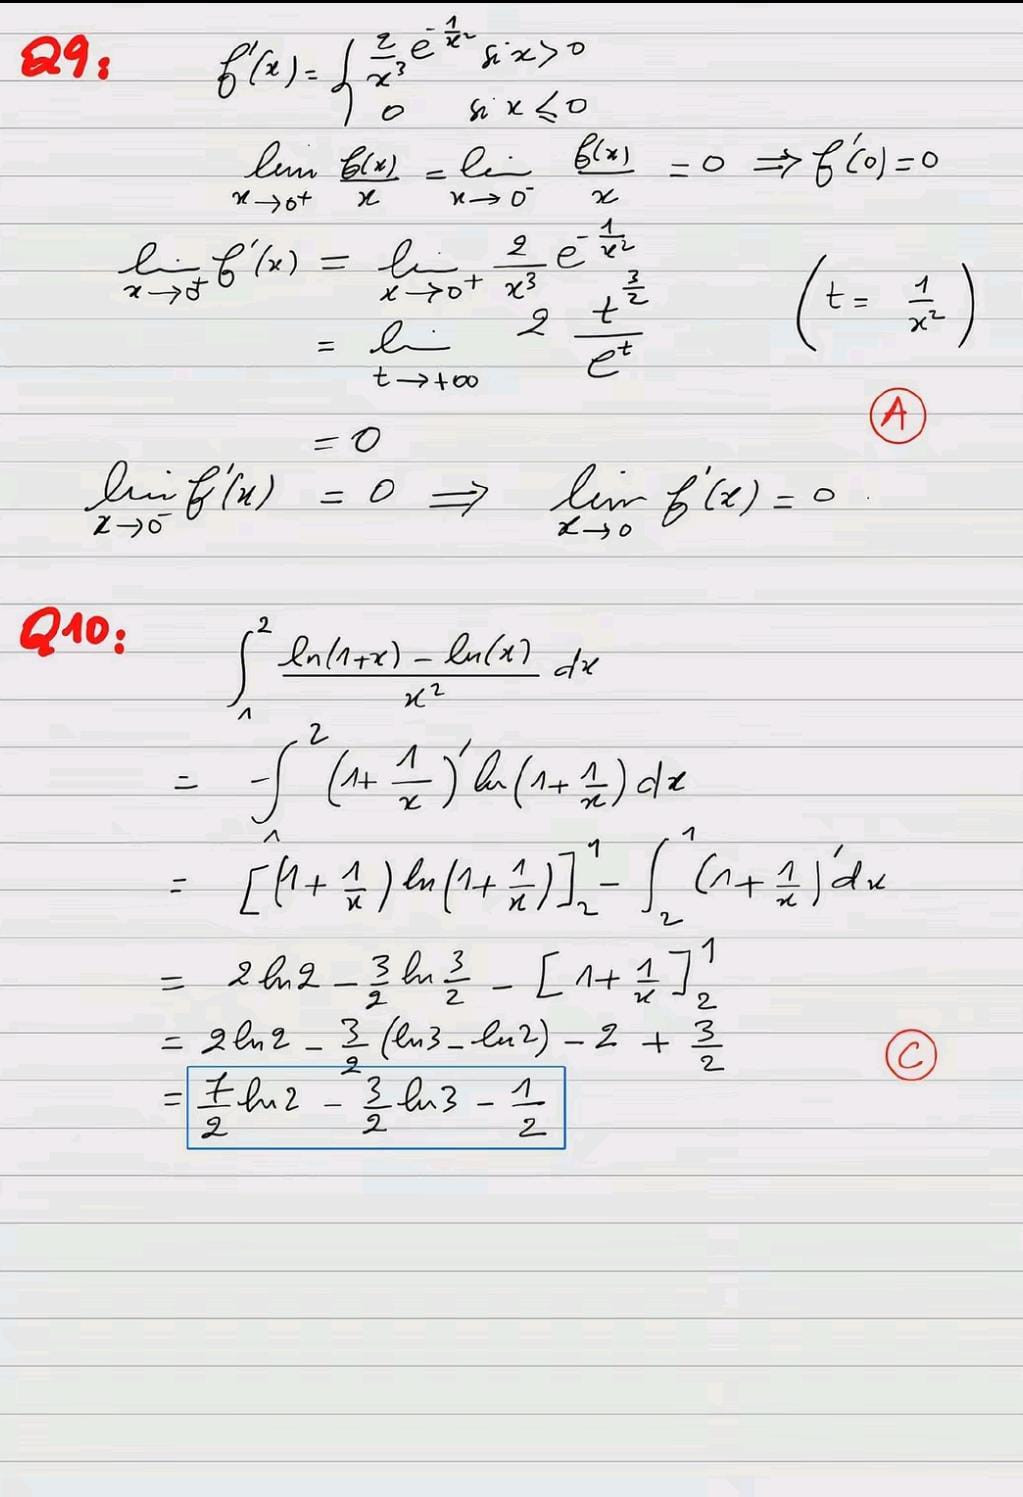 Q9: f'(x) = { 2/x³ e^(-1/x²) si x > 0
0 si x ⩽ 0
lim_{x→0⁺} f(x)/x = lim_{x→0⁻} f(x)/x = 0 ⟹ f'(0) = 0
lim_{x→0⁺} f'(x) = lim_{x→0⁺} 2/x³ e^(-1/x²)
= lim_{t→+∞} 2 t^(3/2)/e^t (t = 1/x²)
A
= 0
lim_{x→0⁻} f'(x) = 0 ⟹ lim_{x→0} f'(x) = 0
Q10:
∫₁² (ln(1+x) - ln(x))/x² dx
= -∫₁² (1 + 1/x)' ln(1 + 1/x) dx
= [(1 + 1/x) ln(1 + 1/x)]₂¹ - ∫₂¹ (1 + 1/x)' dx
= 2 ln2 - 3/2 ln 3/2 - [1 + 1/x]₂¹
= 2 ln2 - 3/2 (ln3 - ln2) - 2 + 3/2
C
= 7/2 ln2 - 3/2 ln3 - 1/2